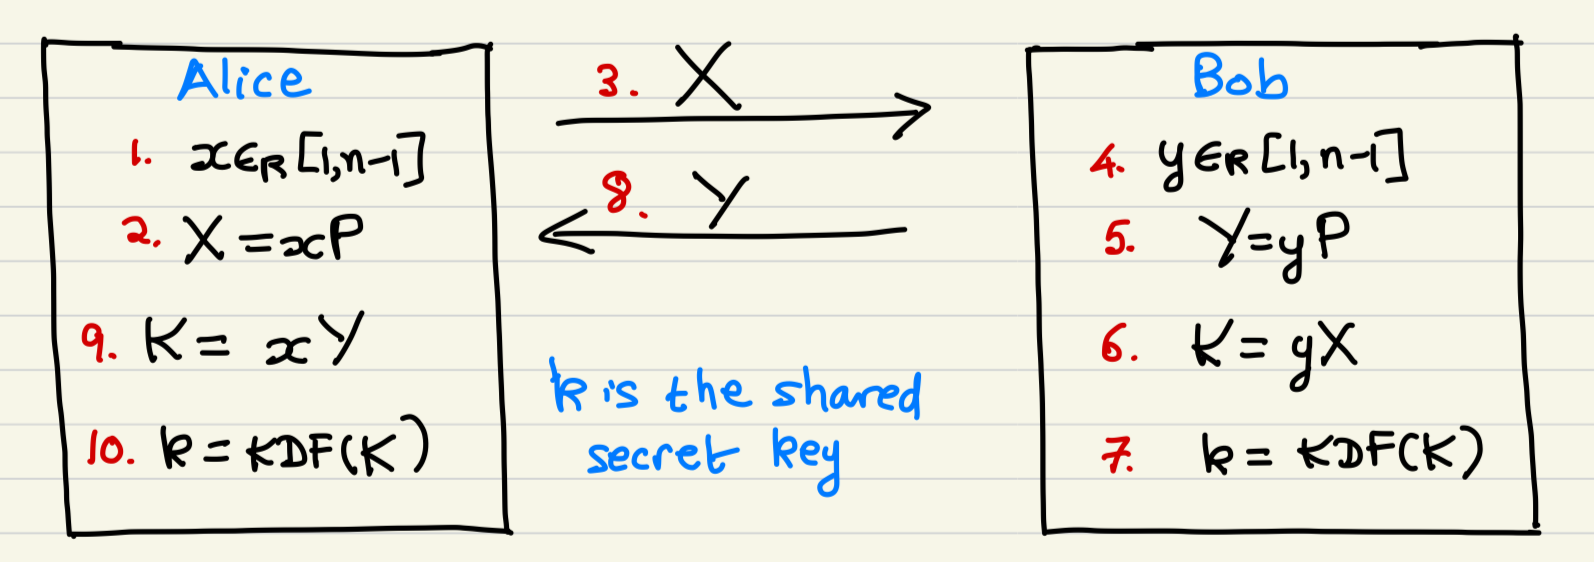 Alice
1. x∈R [1,n-1]
2. X = xP
9. K = xY
10. k = KDF(K)
3. X
8. Y
k is the shared
secret key
Bob
4. y∈R [1,n-1]
5. Y=yP
6. K = yX
7. k = KDF(K)